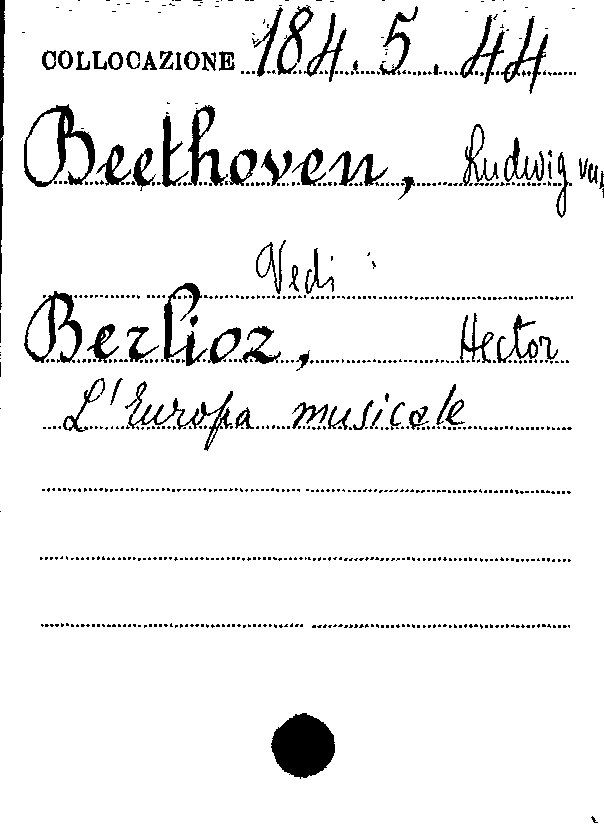 COLLOCAZIONE 184.5.44
Beethoven, Ludwig van
Vedi:
Berlioz, Hector
L'Europa musicale